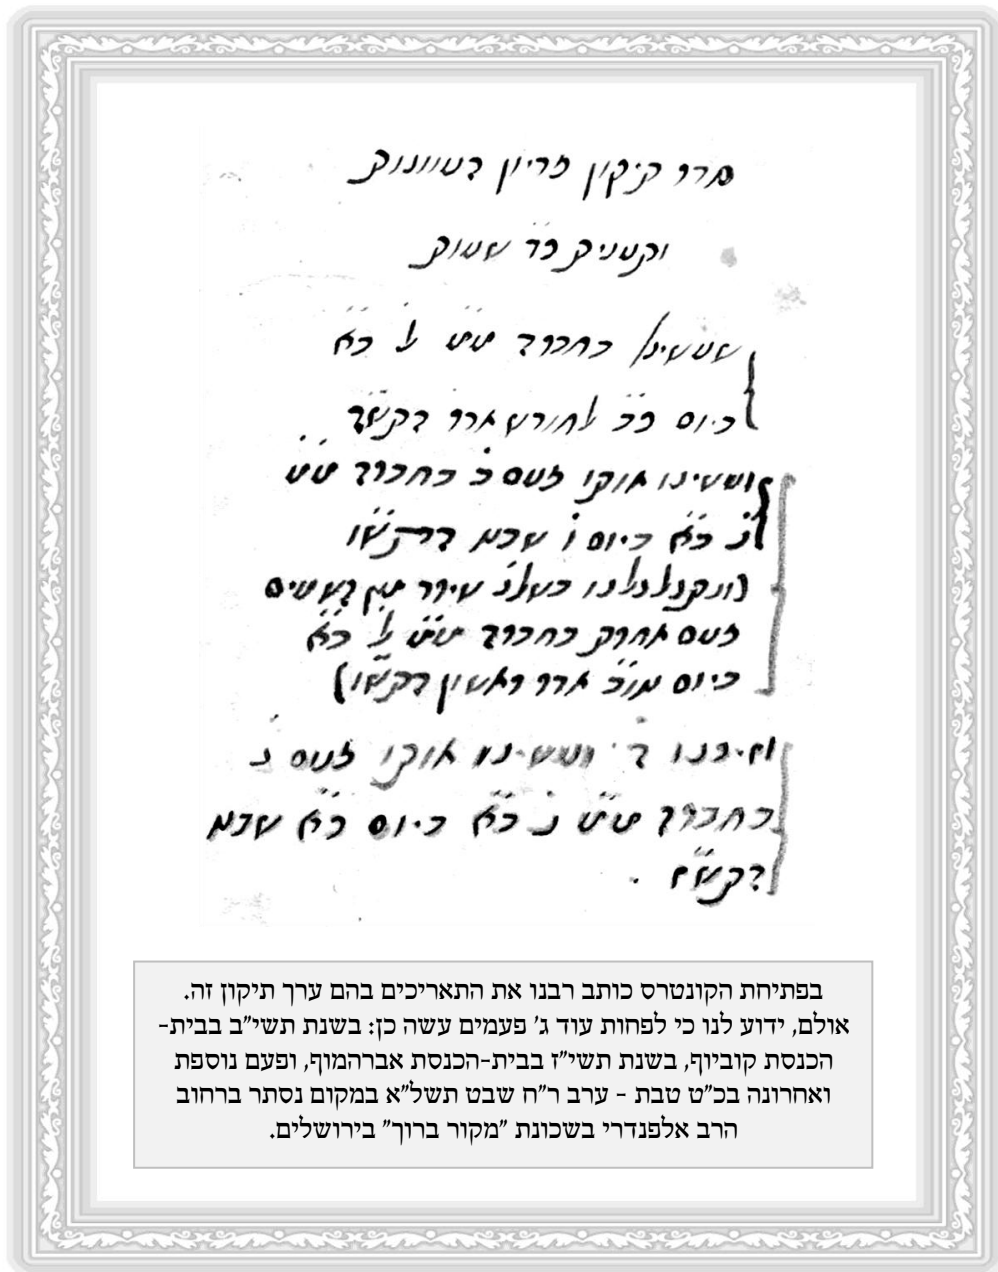 סדר תיקון פדיון העוונות
ותענית כ״ד שעות
שעשינו בחברה כ״א
ביום כ״ב לחודש אדר התש״ה
ועשינו אותו פעם ב׳ בחברה
כ״א ביום ו׳ שבט ה׳תש״ו
פעם אחרת בחברה כ״א
ביום אדר ראשון התש״ו)
וזיכנו ה׳ ועשינו אותו פעם ג׳
בחברה כ״א ביום כ״א שבט
התש״ח .
בפתיחת הקונטרס כותב רבנו את התאריכים בהם ערך תיקון זה.
אולם, ידוע לנו כי לפחות עוד ג׳ פעמים עשה כן: בשנת תשי״ב בבית-
הכנסת קוביוף, בשנת תשי״ז בבית-הכנסת אברהמוף, ופעם נוספת
ואחרונה בכ״ט טבת - ערב ר״ח שבט תשל״א במקום נסתר ברחוב
הרב אלפנדרי בשכונת ״מקור ברוך״ בירושלים.